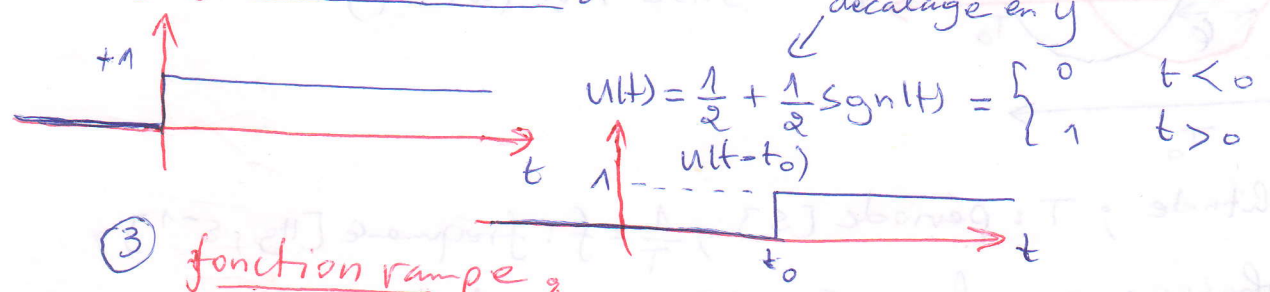 décalage en y
+1
u(t) = 1/2 + 1/2 sgn(t) = { 0 t < 0
1 t > 0
t
u(t-t₀)
1
t₀
t
③ fonction rampe :